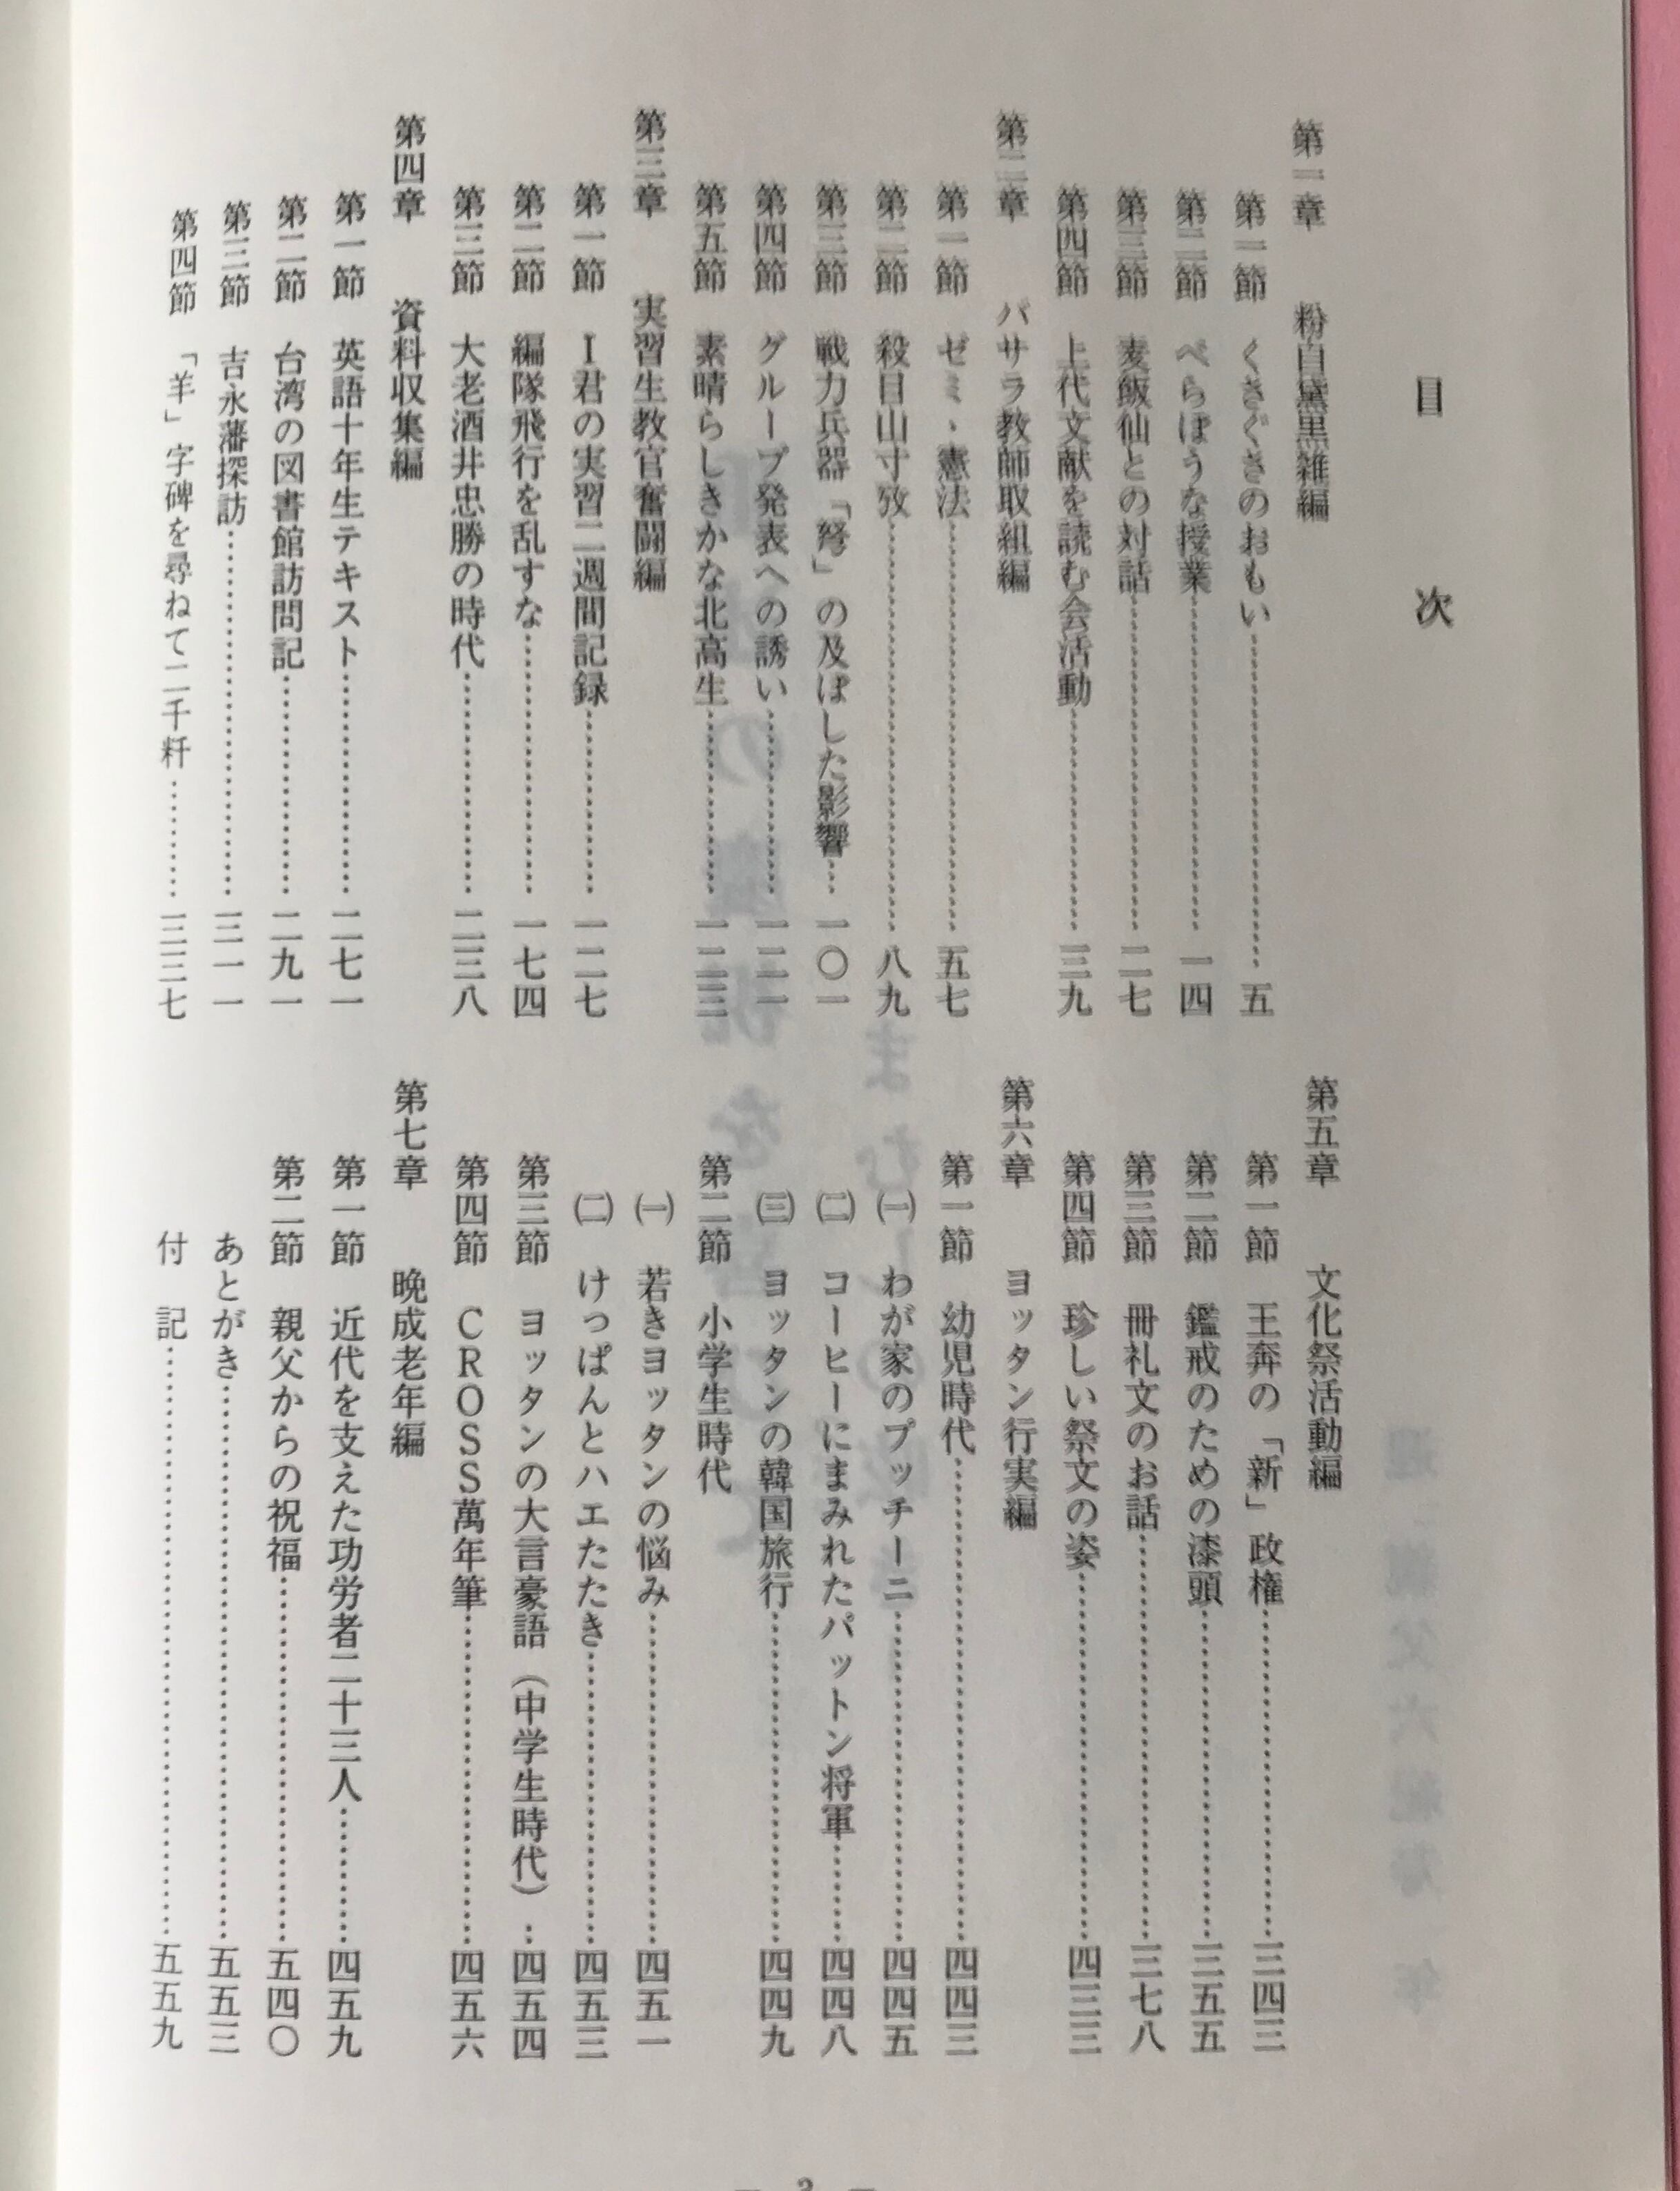 目次
第一章 粉白黛黒雑編
第一節 くさぐさのおもい……五
第二節 べらぼうな授業……一四
第三節 麦飯仙との対話……二七
第四節 上代文献を読む会活動……三九
第二章 バサラ教師取組編
第一節 ゼミ、憲法……五七
第二節 殺目山寸攷……八九
第三節 戦力兵器「弩」の及ぼした影響……一〇一
第四節 グループ発表への誘い……一二一
第五節 素晴らしきかな北高生……一二三
第三章 実習生教官奮闘編
第一節 I君の実習二週間記録……一二七
第二節 編隊飛行を乱すな……一七四
第三節 大老酒井忠勝の時代……二三八
第四章 資料収集編
第一節 英語十年生テキスト……二七一
第二節 台湾の図書館訪問記……二九一
第三節 吉永藩探訪……三一一
第四節 「羊」字碑を尋ねて二千粁……三三七
第五章 文化祭活動編
第一節 王莽の「新」政権……三四三
第二節 鑑戒のための漆頭……三五五
第三節 冊礼文のお話……三七八
第四節 珍しい祭文の姿……四三三
第六章 ヨッタン行実編
第一節 幼児時代……四四三
㈠ わが家のプッチーニ……四四五
㈡ コーヒーにまみれたパットン将軍……四四八
㈢ ヨッタンの韓国旅行……四四九
第二節 小学生時代
㈠ 若きヨッタンの悩み……四五一
㈡ けっぱんとハエたたき……四五三
第三節 ヨッタンの大言豪語（中学生時代）…四五四
第四節 CROSS萬年筆……四五六
第七章 晩成老年編
第一節 近代を支えた功労者二十三人……四五九
第二節 親父からの祝福……五四〇
あとがき……五五三
付記……五五九